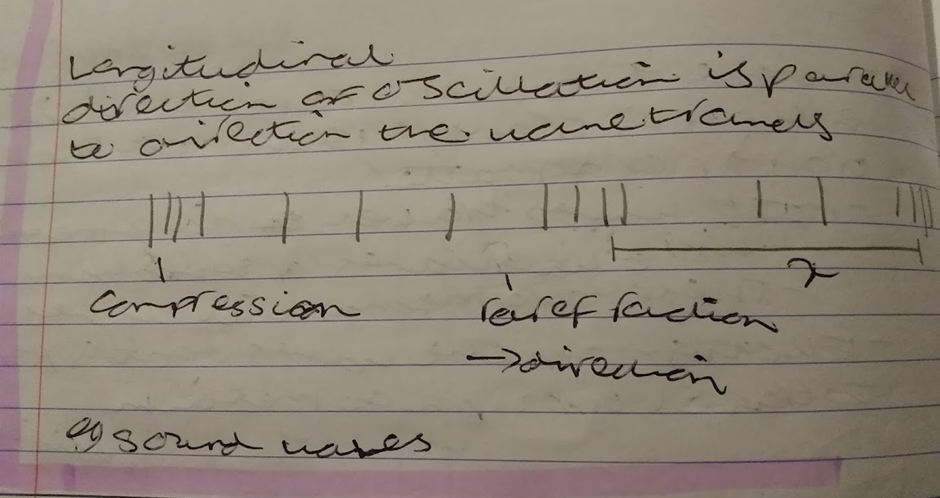 Longitudinal
direction of oscillation is parallel
to direction the wave travels
λ
compression rarefraction
→direction
eg sound waves